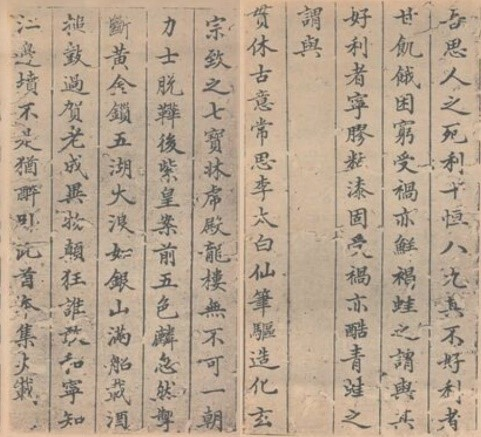 吾思人之死利十恒八九其不好利者
甘飢餓困窮受禍亦鮮褐蛙之謂與其
好利者寧膠黏漆固受禍亦酷青蛙之
謂與
貫休古意常思李太白仙筆驅造化玄
宗致之七寶牀虎殿龍樓無不可一朝
力士脫鞾後紫皇案前五色麟忽然掣
斷黃金鎖五湖大浪如銀山滿船載酒
撾鼓過賀老成異物顛狂誰敢和寧知
江邊墳不是猶醉臥